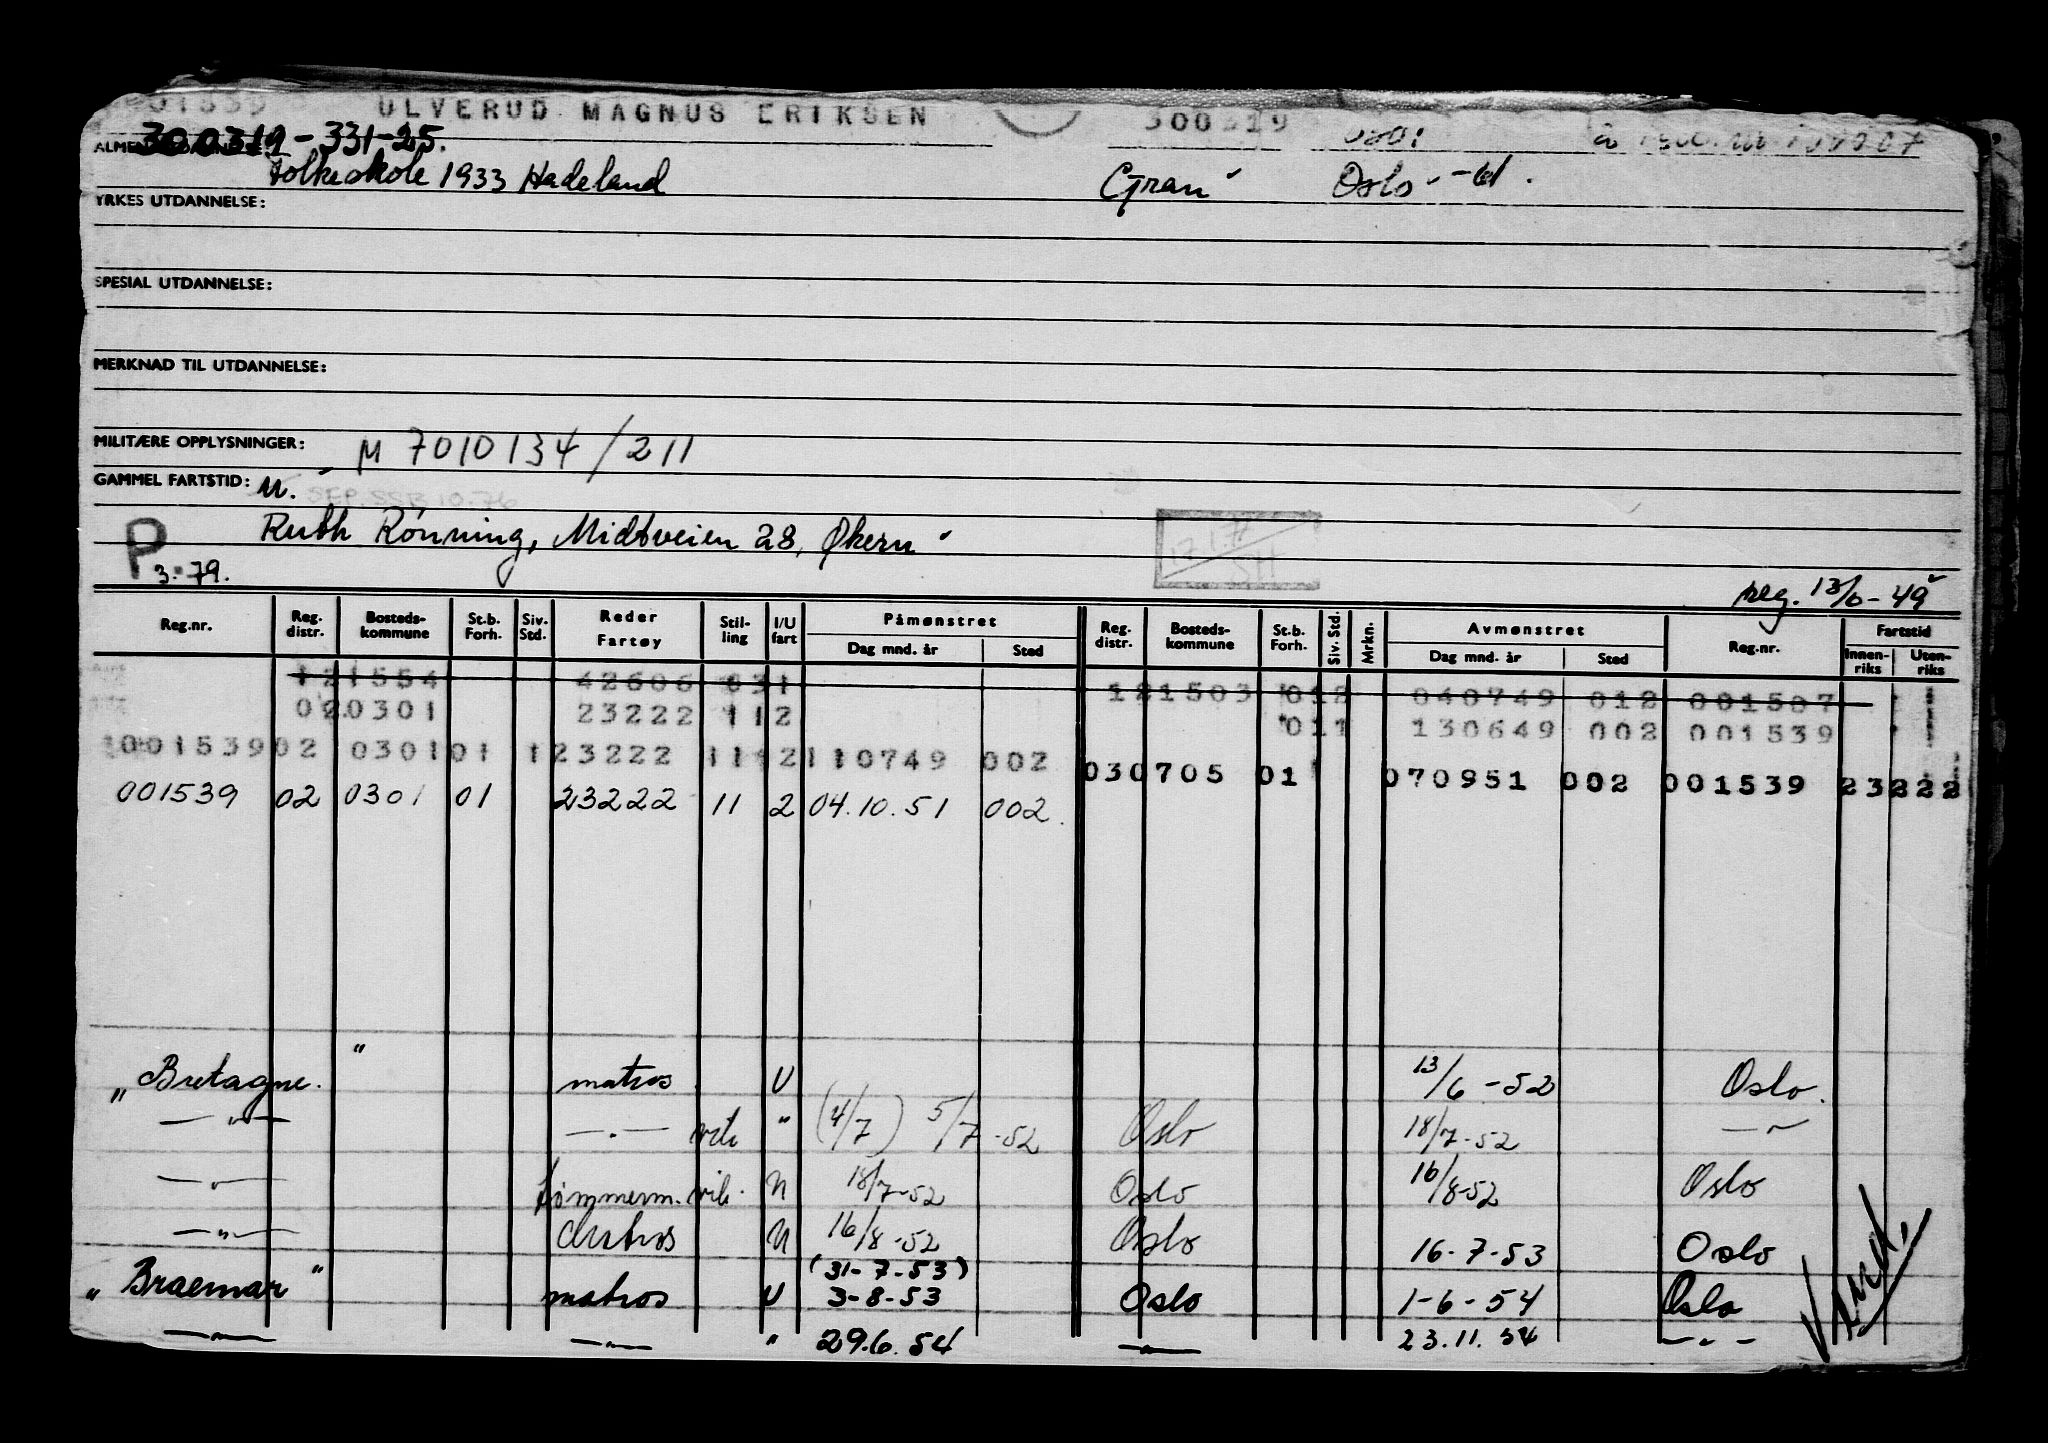 001539 ULVERUD MAGNUS ERIKSEN 300319
300319-331-25.
Folkeskole 1933 Hadeland Gran Oslo -61.
YRKES UTDANNELSE:
SPESIAL UTDANNELSE:
MERKNAD TIL UTDANNELSE:
MILITÆRE OPPLYSNINGER: M 7010134/211
GAMMEL FARTSTID: U. SEP. SSB 10.76
Ruth Rönning, Midtveien 28, Økern
P 3.-79. reg. 13/6-49
Reg.nr. Reg. distr. Bosteds-kommune St.b. Forh. Siv. Std. Reder Fartøy Stil-ling I/U fart Påmønstret Dag mnd. år Sted Reg. distr. Bosteds-kommune St.b. Forh. Siv. Std. Mrkn. Avmønstret Dag mnd. år Sted Reg.nr. Fartstid Innen-riks Uten-riks
121554 42606 631 121503 012 040749 012 001507
020301 23222 112 011 130649 002 001539
001539 02 0301 01 1 23222 11 2 110749 002 030705 01 070951 002 001539 23222
001539 02 0301 01 23222 11 2 04.10.51 002
„Bretagne." matros U 13/6-52 Oslo.
—"— —.— vik " (4/7) 5/7-52 Oslo 18/7-52 —"—
—"— tømmerm. vik. U 18/7-52 Oslo 16/8-52 Oslo
—"— Matros U 16/8-52 Oslo 16-7-53 Oslo
„Braemar" matros U (31-7-53) 3-8-53 Oslo 1-6-54 Oslo
—"— —"— " 29.6.54 —"— 23.11.54 —"—